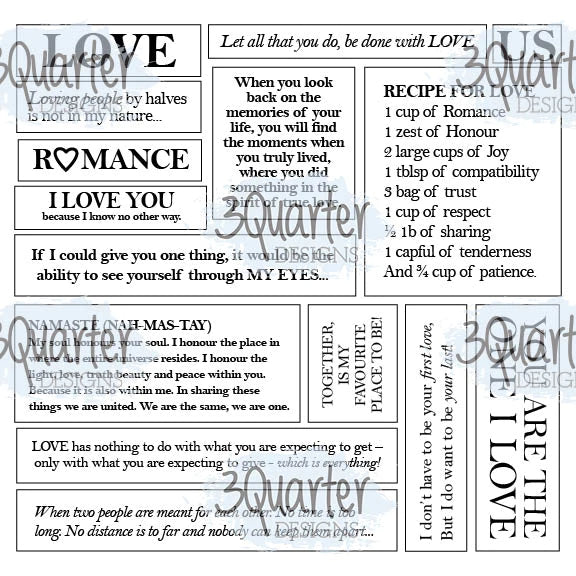 LOVE
Let all that you do, be done with LOVE
US
Loving people by halves
is not in my nature...
When you look
back on the
memories of your
life, you will find
the moments when
you truly lived,
where you did
something in the
spirit of true love.
RECIPE FOR LOVE
1 cup of Romance
1 zest of Honour
2 large cups of Joy
1 tblsp of compatibility
3 bag of trust
1 cup of respect
½ lb of sharing
1 capful of tenderness
And ¾ cup of patience.
R♡MANCE
I LOVE YOU
because I know no other way.
If I could give you one thing, it would be the
ability to see yourself through MY EYES...
NAMASTE (NAH-MAS-TAY)
My soul honours your soul. I honour the place in
where the entire universe resides. I honour the
light, love, truth beauty and peace within you.
Because it is also within me. In sharing these
things we are united. We are the same, we are one.
TOGETHER,
IS MY
FAVOURITE
PLACE TO BE!
I don't have to be your first love,
But I do want to be your last!
YOU ARE THE
I LOVE
LOVE has nothing to do with what you are expecting to get –
only with what you are expecting to give - which is everything!
When two people are meant for each other. No time is too
long. No distance is to far and nobody can keep them apart...
3Quarter
DESIGNS
3Quarter
DESIGNS
3Quarter
DESIGNS
3Quarter
DESIGNS
3Quarter
DESIGNS
3Quarter
DESIGNS